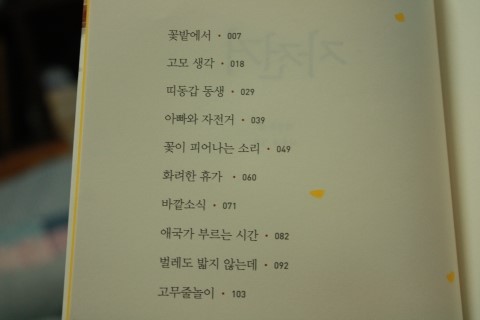 꽃밭에서 • 007
고모 생각 • 018
띠동갑 동생 • 029
아빠와 자전거 • 039
꽃이 피어나는 소리 • 049
화려한 휴가 • 060
바깥소식 • 071
애국가 부르는 시간 • 082
벌레도 밟지 않는데 • 092
고무줄놀이 • 103